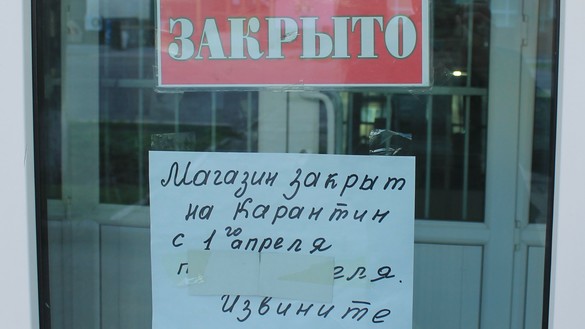 ЗАКРЫТО
Магазин закрыт
на карантин
с 1го апреля
Извините